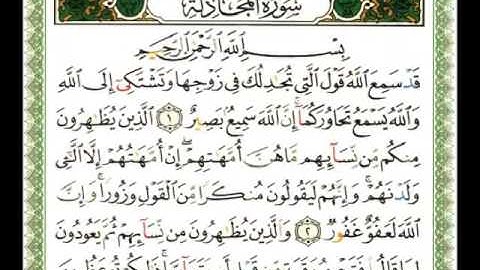 سورة المجادلة
بِسْمِ اللَّهِ الرَّحْمَٰنِ الرَّحِيمِ
قَدْ سَمِعَ اللَّهُ قَوْلَ الَّتِي تُجَادِلُكَ فِي زَوْجِهَا وَتَشْتَكِي إِلَى اللَّهِ
وَاللَّهُ يَسْمَعُ تَحَاوُرَكُمَا ۚ إِنَّ اللَّهَ سَمِيعٌ بَصِيرٌ ١ الَّذِينَ يُظَاهِرُونَ
مِنكُم مِّن نِّسَائِهِم مَّا هُنَّ أُمَّهَاتِهِمْ ۖ إِنْ أُمَّهَاتُهُمْ إِلَّا اللَّائِي
وَلَدْنَهُمْ ۚ وَإِنَّهُمْ لَيَقُولُونَ مُنكَرًا مِّنَ الْقَوْلِ وَزُورًا ۚ وَإِنَّ
اللَّهَ لَعَفُوٌّ غَفُورٌ ٢ وَالَّذِينَ يُظَاهِرُونَ مِن نِّسَائِهِمْ ثُمَّ يَعُودُونَ